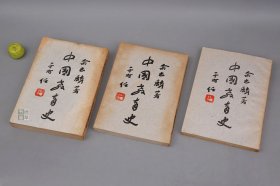 余書麟著
中國教育史
于右任
余書麟著
中國教育史
于右任
余書麟著
中國教育史
于右任